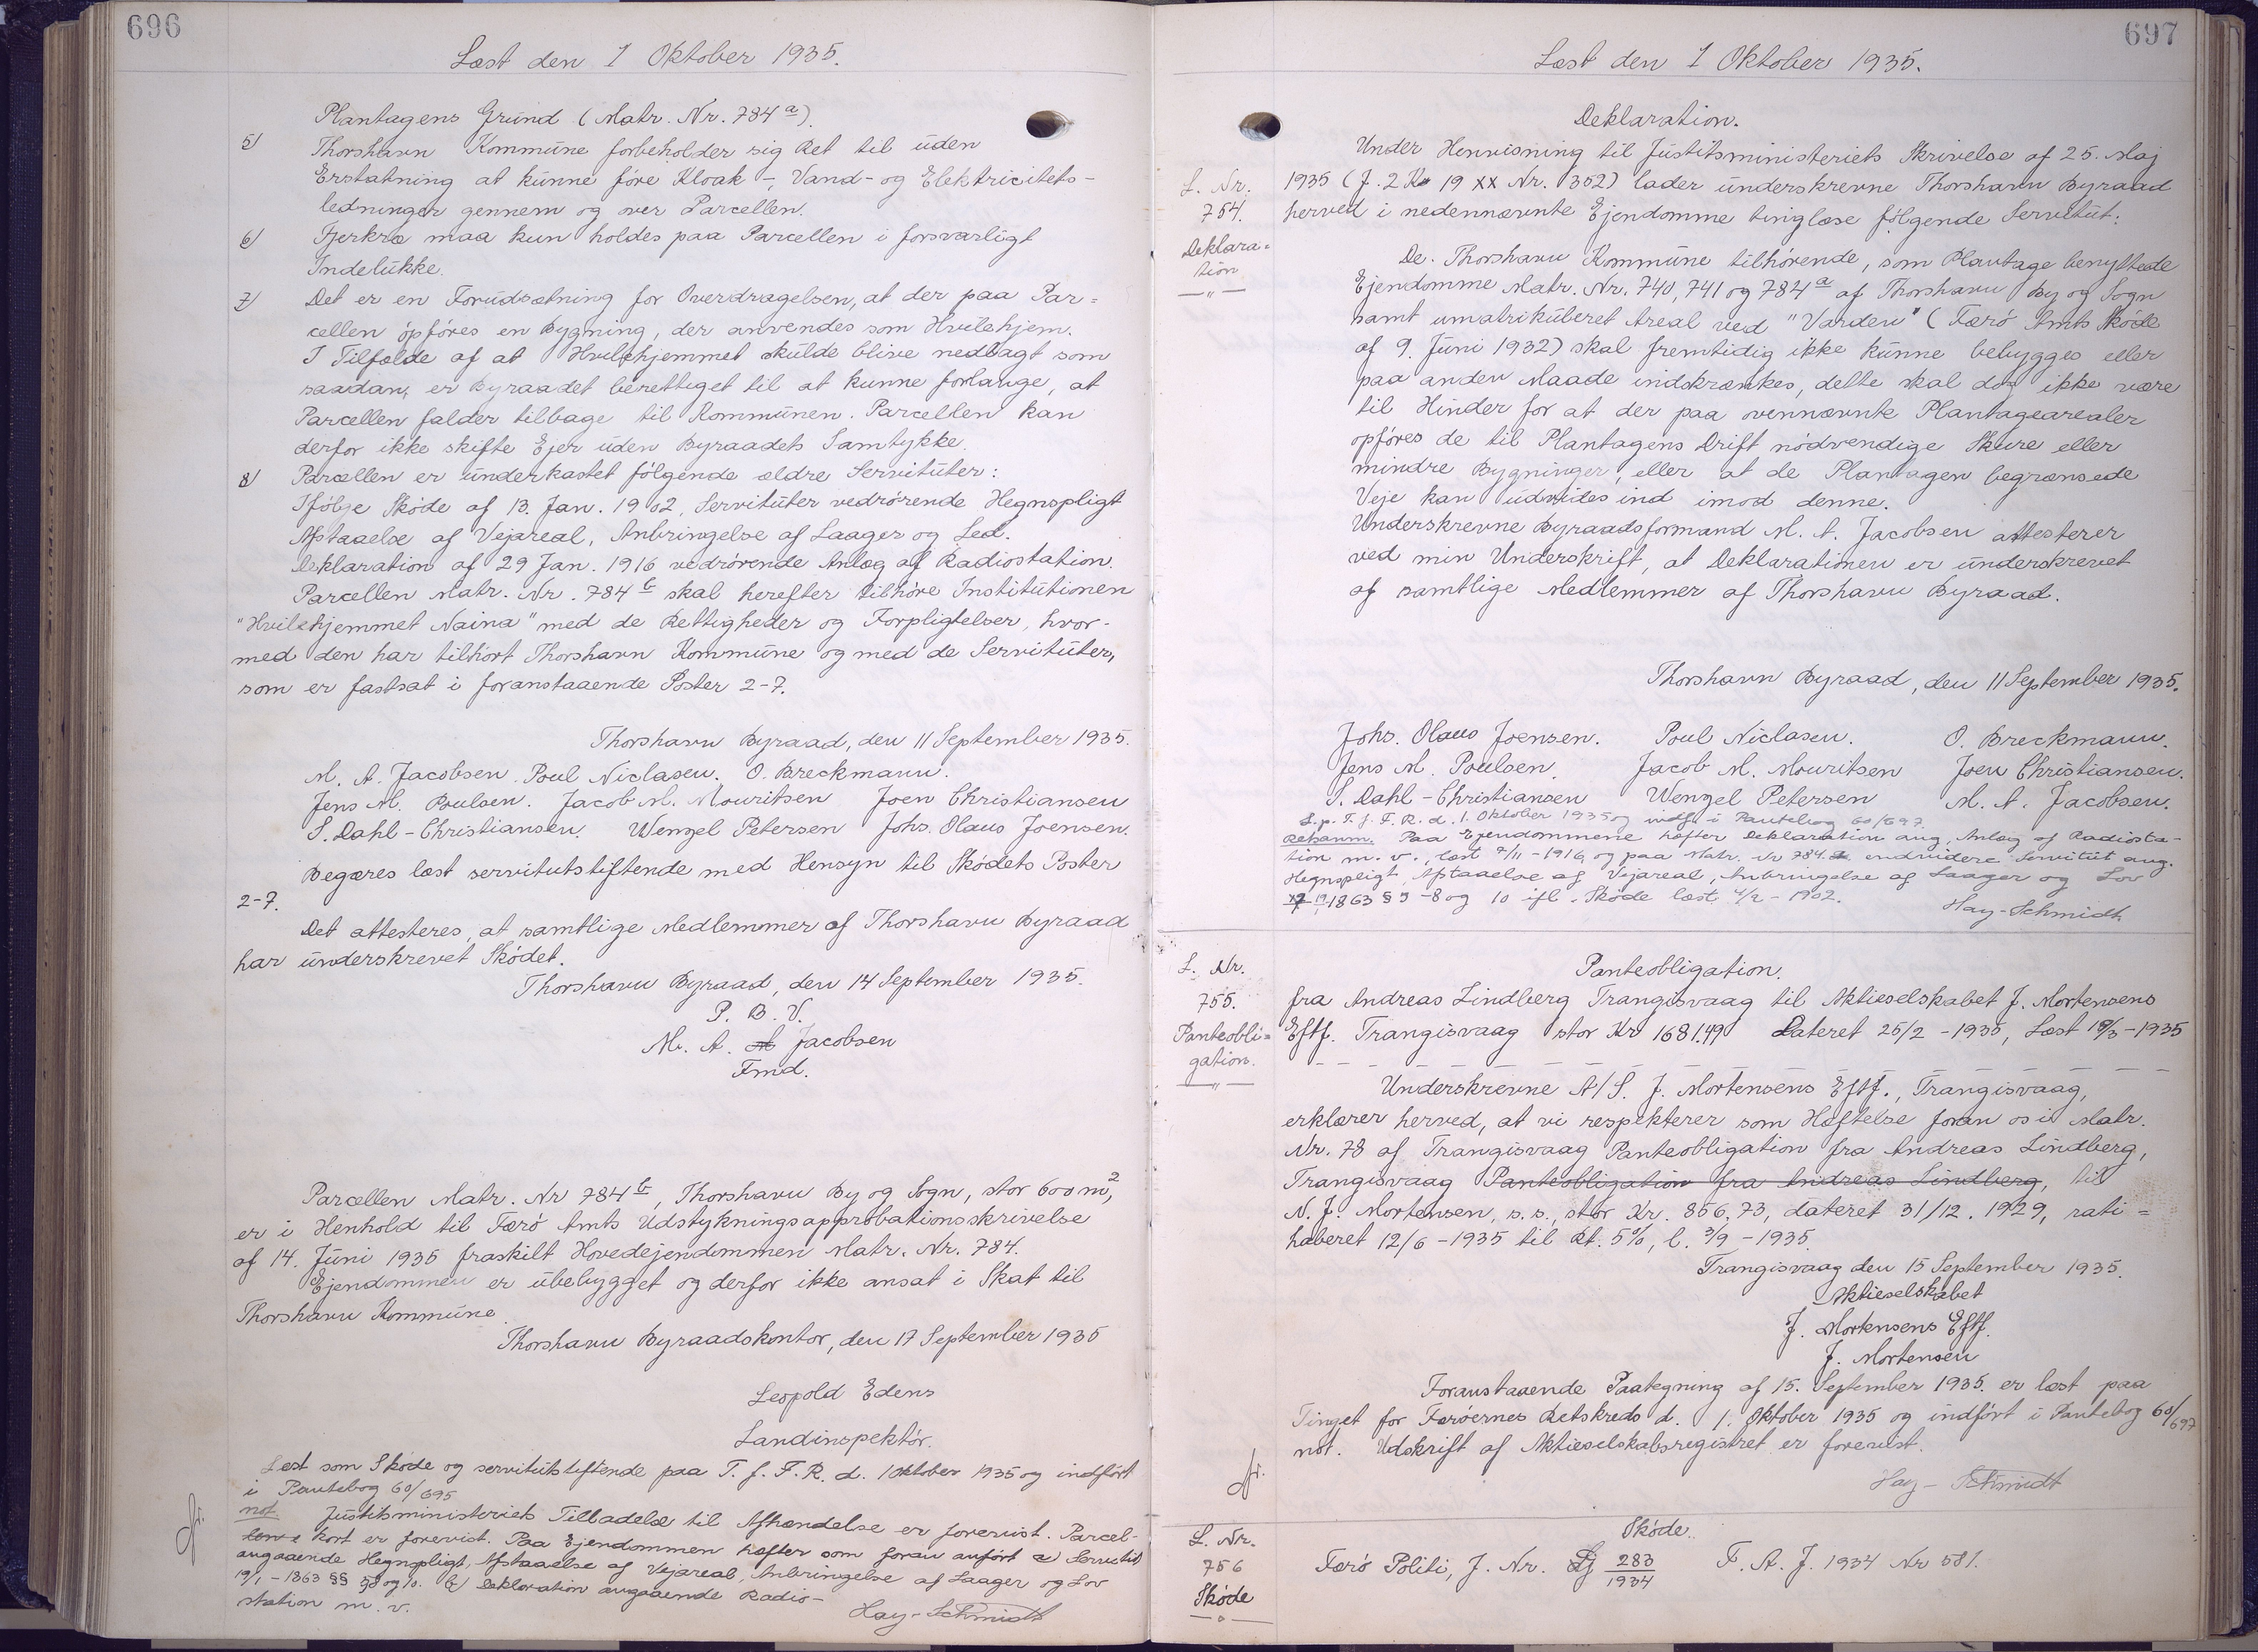 696
Læst den 1 Oktober 1935.
Plantagens Grund (Matr. Nr. 784 a).
5) Thorshavn Kommune forbeholder sig Ret til uden
Erstatning at kunne føre Kloak-, Vand- og Elektricitets-
ledninger gennem og over Parcellen.
6) Fjerkræ maa kun holdes paa Parcellen i forsvarligt
Indelukke.
7) Det er en Forudsætning for Overdragelsen, at der paa Par=
cellen opføres en Bygning, der anvendes som Hvilehjem.
I Tilfælde af at Hvilehjemmet skulde blive nedlagt som
saadan, er Byraadet berettiget til at kunne forlange, at
Parcellen falder tilbage til Kommunen. Parcellen kan
derfor ikke skifte Ejer uden Byraadets Samtykke.
8) Parcellen er underkastet følgende ældre Servituter:
Ifølge Skøde af 13. Jan. 1902, Servituter vedrørende Hegnspligt
Afstaaelse af Vejareal, Anbringelse af Laager og Led.
Deklaration af 29 Jan. 1916 vedrørende Anlæg af Radiostation.
Parcellen Matr. Nr. 784 b skal herefter tilhøre Institutionen
"Hvilehjemmet Naina" med de Rettigheder og Forpligtelser, hvor-
med den har tilhørt Thorshavn Kommune og med de Servituter,
som er fastsat i foranstaaende Poster 2-7.
Thorshavn Byraad, den 11 September 1935.
M. A. Jacobsen. Poul Niclasen. O. Breckmann.
Jens M. Poulsen. Jacob M. Mouritsen Joen Christiansen
S. Dahl-Christiansen. Wenzel Petersen Johs. Olaus Joensen.
Begæres læst servitutstiftende med Hensyn til Skødets Poster
2-7.
Det attesteres, at samtlige Medlemmer af Thorshavn Byraad
har underskrevet Skødet.
Thorshavn Byraad, den 14 September 1935.
P. B. V.
M. A. Jacobsen
Fmd.
Parcellen Matr. Nr 784 b, Thorshavn By og Sogn, stor 600 m²,
er i Henhold til Færø Amts Udstykningsapprobationsskrivelse
af 14. Juni 1935 fraskilt Hovedejendommen Matr. Nr. 784.
Ejendommen er ubebygget og derfor ikke ansat i Skat til
Thorshavn Kommune.
Thorshavn Byraadskontor, den 17 September 1935
Leopold Edens
Landinspektør.
Læst som Skøde og servitutstiftende paa T. f. F. R. d. 1 Oktober 1935 og indført
i Pantebog 60/695
not. Justitsministeriets Tilladelse til Afhændelse er forevist. Parcel-
lens kort er forevist. Paa Ejendommen hæfter som foran anført a) Servitut
angaaende Hegnspligt, Afstaaelse af Vejareal, Anbringelse af Laager og Lov
19/1-1863 §§ 58 og 10. b) Deklaration angaaende Radio-
station m. v. Hay-Schmidt
697
Læst den 1 Oktober 1935.
Deklaration.
L. Nr.
754.
Deklara=
tion
Under Henvisning til Justitsministeriets Skrivelse af 25. Maj
1935 (J. 2 K 19 XX Nr. 352) lader underskrevne Thorshavn Byraad
herved i nedennævnte Ejendomme tinglæse følgende Servitut:
De. Thorshavn Kommune tilhørende, som Plantage benyttede
Ejendomme Matr. Nr. 740, 741 og 784 a af Thorshavn By og Sogn
samt umatrikuleret Areal ved "Varden" (Færø Amts Skøde
af 9. Juni 1932) skal fremtidig ikke kunne bebygges eller
paa anden Maade indskrænkes, dette skal dog ikke være
til Hinder for at der paa ovennævnte Plantagearealer
opføres de til Plantagens Drift nødvendige Skure eller
mindre Bygninger, eller at de Plantagen begrænsede
Veje kan udvides ind imod denne.
Underskrevne Byraadsformand M. A. Jacobsen attesterer
ved min Underskrift, at Deklarationen er underskrevet
af samtlige Medlemmer af Thorshavn Byraad.
Thorshavn Byraad, den 11 September 1935.
Johs. Olaus Joensen. Poul Niclasen. O. Breckmann.
Jens M. Poulsen. Jacob M. Mouritsen Joen Christiansen.
S. Dahl-Christiansen Wenzel Petersen M. A. Jacobsen.
L. p. T. f. F. R. d. 1. Oktober 1935 og indf. i Pantebog 60/697
Retsanm. Paa Ejendommene hæfter Deklaration ang. Anlæg af Radiosta-
tion m. v., læst 7/11-1916 og paa Matr. Nr 784 a endvidere Servitut ang.
Hegnspligt, Afstaaelse af Vejareal, Anbringelse af Laager og Lov
1863 § 5-8 og 10 ifl. Skøde læst 4/2-1902.
Hay-Schmidt
L. Nr.
755.
Panteobli=
gation.
Panteobligation.
fra Andreas Lindberg Trangisvaag til Aktieselskabet J. Mortensens
Eftf. Trangisvaag stor Kr 1681.49 Dateret 25/2-1935, Læst 19/3-1935
Underskrevne A/S. J. Mortensens Eftf., Trangisvaag,
erklærer herved, at vi respekterer som Hæftelse foran os i Matr.
Nr. 78 af Trangisvaag Panteobligation fra Andreas Lindberg,
Trangisvaag Panteobligation fra Andreas Lindberg, til
N. J. Mortensen, s. s., stor Kr. 856,73, dateret 31/12. 1929, rati=
haberet 12/6-1935 til Rt. 5%, l. 3/9-1935.
Trangisvaag den 15 September 1935.
Aktieselskabet
J. Mortensens Eftf.
J. Mortensen
Foranstaaende Paategning af 15. September 1935. er læst paa
Tinget for Færøernes Retskreds d. 1. Oktober 1935 og indført i Pantebog 60/697
not. Udskrift af Aktieselskabsregistret er forevist.
Hay-Schmidt
L. Nr.
756
Skøde
Skøde.
Færø Politi, J. Nr. 283/1934 F. A. J. 1934 Nr 581.